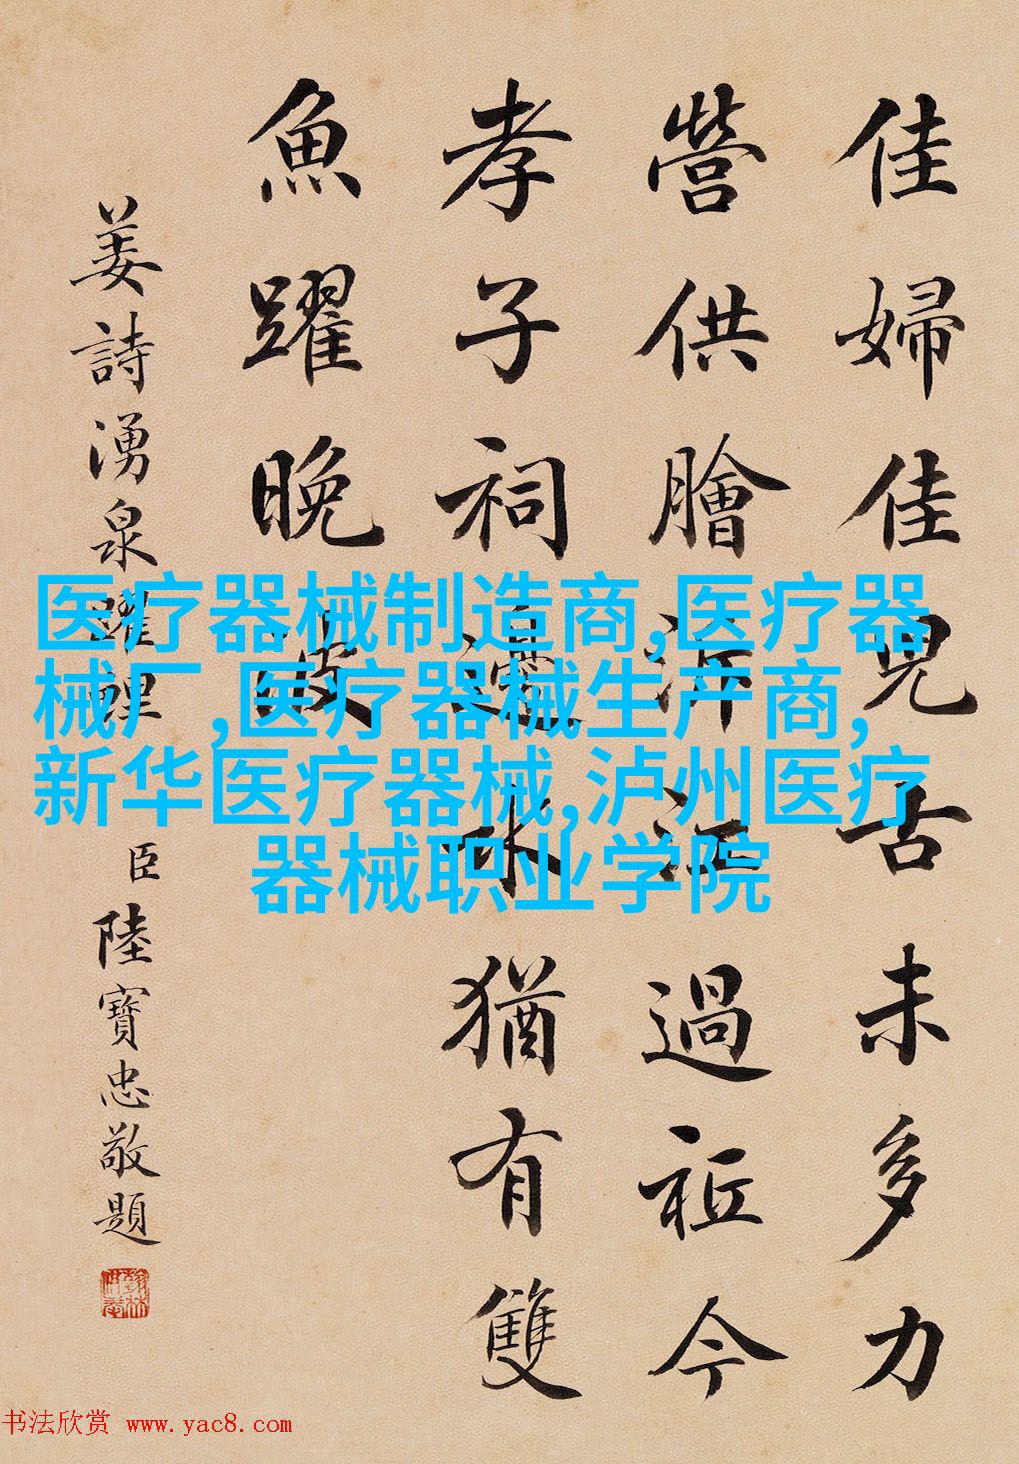 佳婦佳兒古未多力
營供膾泝江過祉今
孝子祠邊水猶有雙
魚躍晚波
姜詩湧泉躍鯉
臣陸寶忠敬題
医疗器械制造商,医疗器
械厂,医疗器械生产商,
新华医疗器械,泸州医疗
器械职业学院
书法欣赏 www.yac8.com